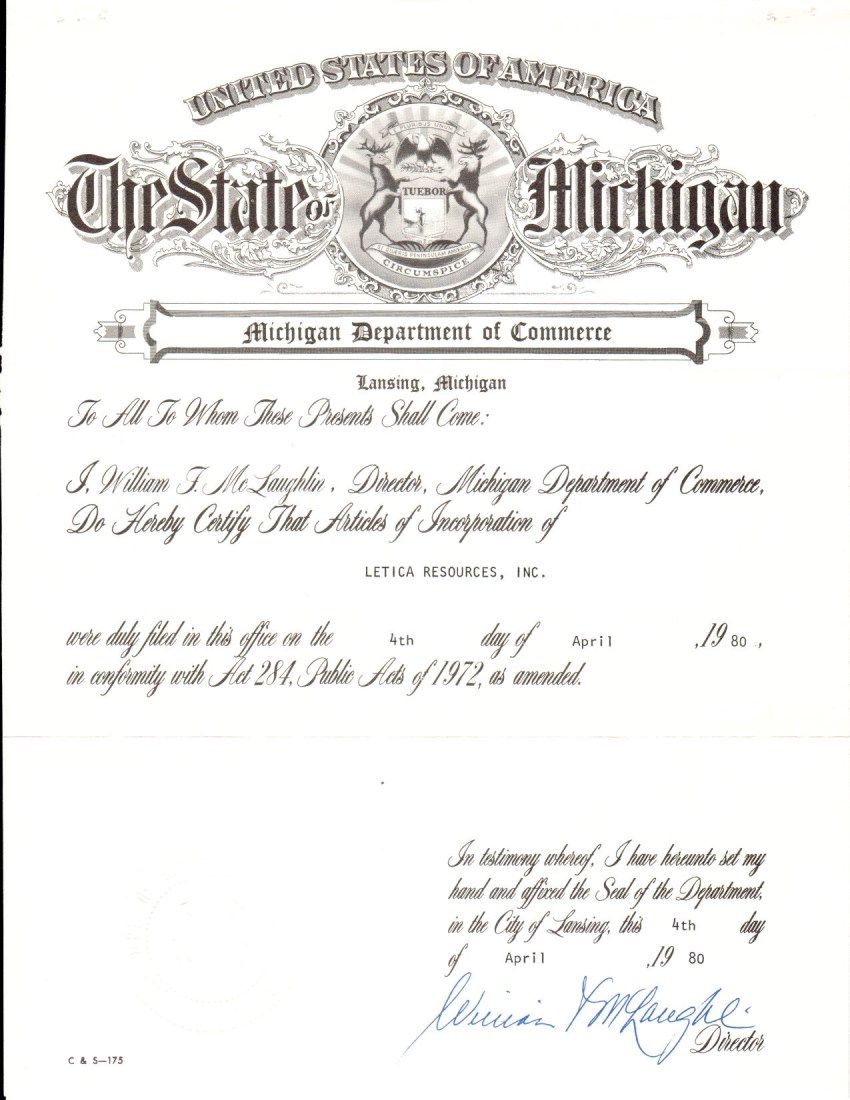 UNITED STATES OF AMERICA
The State of Michigan
E PLURIBUS UNUM
TUEBOR
SI QUAERIS PENINSULAM AMOENAM
CIRCUMSPICE
Michigan Department of Commerce
Lansing, Michigan
To All To Whom These Presents Shall Come:
I, William F. McLaughlin, Director, Michigan Department of Commerce,
Do Hereby Certify That Articles of Incorporation of
LETICA RESOURCES, INC.
were duly filed in this office on the 4th day of April , 19 80 ,
in conformity with Act 284, Public Acts of 1972, as amended.
In testimony whereof, I have hereunto set my
hand and affixed the Seal of the Department,
in the City of Lansing, this 4th day
of April , 19 80
William F McLaughlin
Director
C & S—175